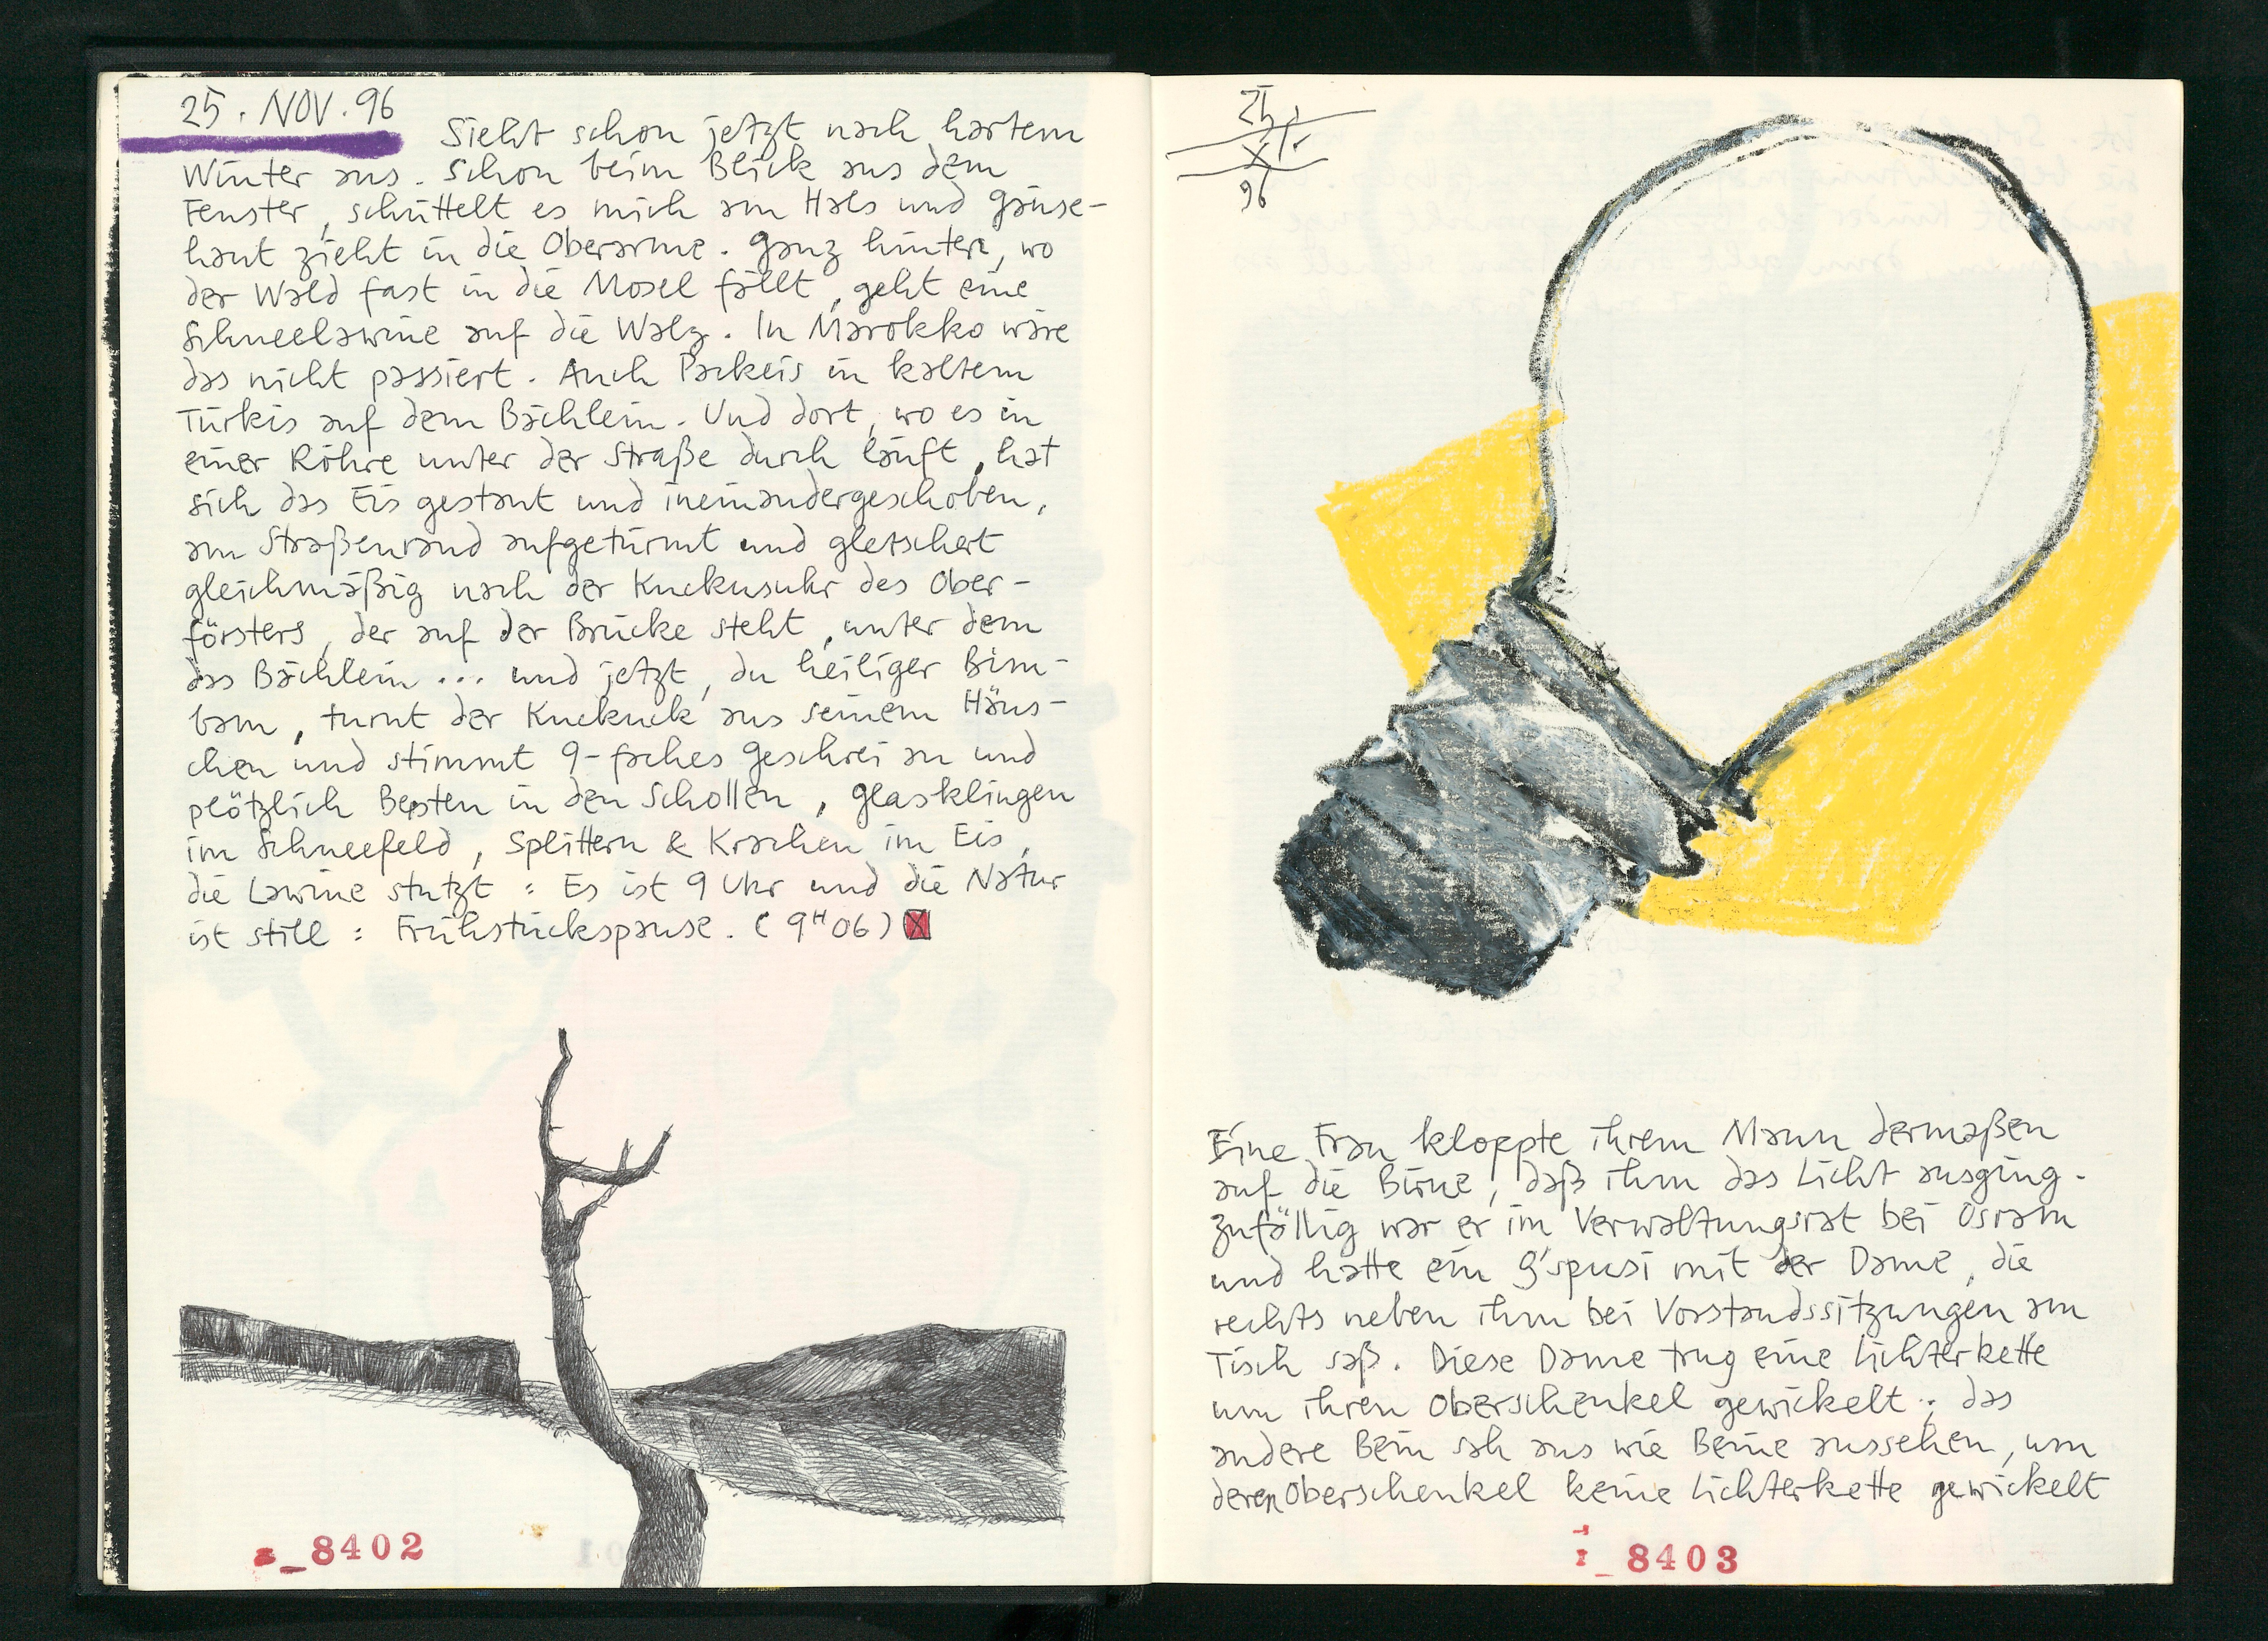 25. NOV. 96
Sieht schon jetzt nach hartem
Winter aus. Schon beim Blick aus dem
Fenster, schüttelt es mich am Hals und Gänse-
haut zieht in die Oberarme. Ganz hinten, wo
der Wald fast in die Mosel fällt, geht eine
Schneelawine auf die Walz. In Marokko wäre
das nicht passiert. Auch Packeis in kaltem
Türkis auf dem Bächlein. Und dort, wo es in
einer Röhre unter der Straße durch läuft, hat
sich das Eis gestaut und ineinandergeschoben,
am Straßenrand aufgetürmt und gletschert
gleichmäßig nach der Kuckusuhr des Ober-
försters, der auf der Brücke steht, unter dem
das Bächlein ... und jetzt, du heiliger Bim-
bam, turnt der Kuckuck aus seinem Häus-
chen und stimmt 9-faches Geschrei an und
plötzlich Bersten in den Schollen, Glasklingen
im Schneefeld, Splittern & Krachen im Eis,
die Lawine stutzt : Es ist 9 Uhr und die Natur
ist still : Frühstückspause. (9H06)
8402
25.
XI.
96
Eine Frau kloppte ihrem Mann dermaßen
auf die Birne, daß ihm das Licht ausging.
Zufällig war er im Verwaltungsrat bei Osram
und hatte ein G'spusi mit der Dame, die
rechts neben ihm bei Vorstandssitzungen am
Tisch saß. Diese Dame trug eine Lichterkette
um ihren Oberschenkel gewickelt; das
andere Bein sah aus wie Beine aussehen, um
deren Oberschenkel keine Lichterkette gewickelt
8403